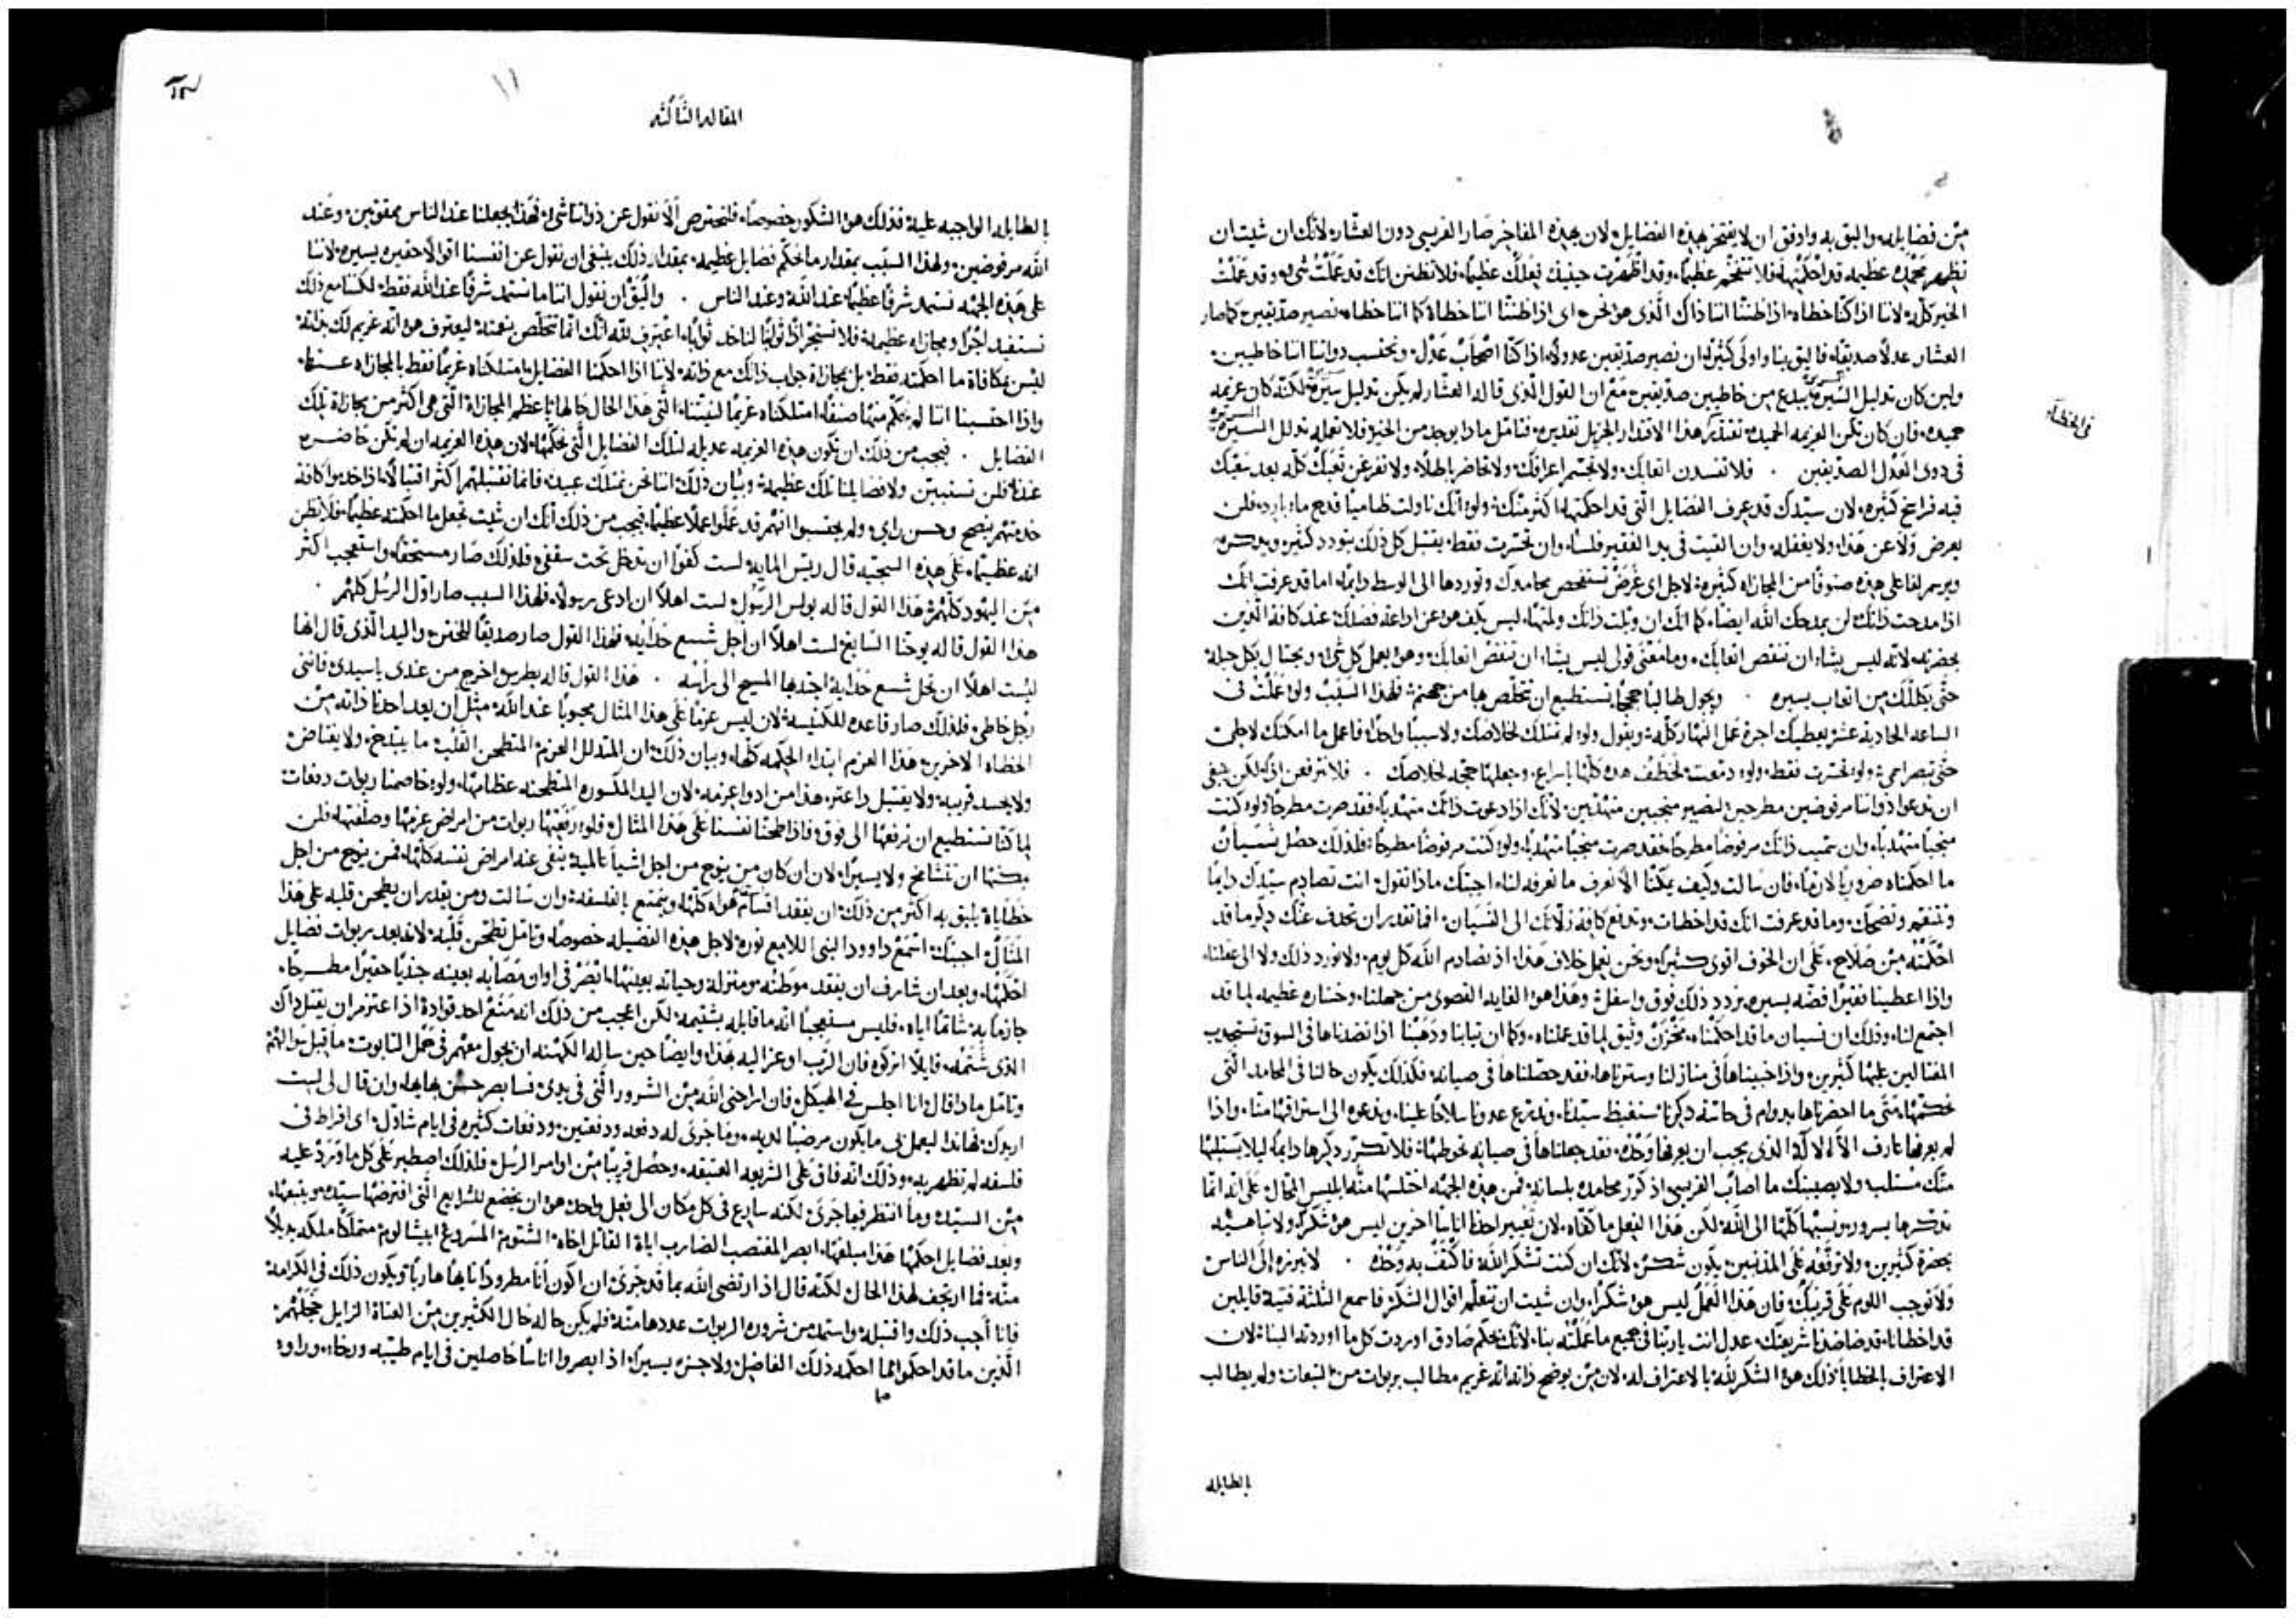 من فضايله واليق به واوفق ان لا يفتخر بهذه الفضايل لان بهذه المفاخر صار الفريسي دون العشار لانك ان شيت ان
تظهر محمده عظيمه قد احكمتها فلا تتفخم عظيمًا وقد اظهرت حينيذ فعلك عظيمًا فلا تظنن انك قد عملت شي وقد عملت
الخير كله لاننا اذا كنا خطاه اذا ظننا اننا ذاك الذي هو نحن اى اذا ظننا اننا خطاة كما اننا خطاه نصير صديقين كما صار
العشار عدلًا صديقا فاليق بنا واولى كثيرًا ان نصير صديقين عدولًا اذا كنا اصحاب عدل ونحتسب ذواتنا اننا خاطيين
ولين كان تذليل السيرة يبدع من خاطيين صديقين مع ان القول الذى قاله العشار لم يكن تذليل سيرة لكنه كان عزيمه
حميده فان كان تكن العزيمه الحميده تقتدر هذا الاقتدار الجزيل تقديره فتامل ماذا يوجد من الخير فلا تعمله تذلل السيرة
فى الخطاه
فى ذوى العدل الصديقين . فلا تفسدن اتعابك ولا تخسر اعراقك ولا تحاضر باطلًا ولا تفرغن تعبك كله بعد سعيك
فيه فراسخ كثيره لان سيدك قد يعرف الفضايل التى قد احكمتها اكثر منك ولو انك ناولت ظاميًا قدح ماء بارد فلن
يعرض ولا عن هذا ولا يغفله وان القيت فى يد الفقير فلسًا وان تحسرت فقط يقتبل كل ذلك بتودد كثير ويذكره
ويرسم لفاعلى هذه صنوفًا من المجازاه كثيره لاجل اى غرض تستفحص محامدك وتوردها الى الوسط دايمًا اما قد عرفت انك
اذا مدحت ذاتك لن يمدحك الله ايضًا كما انك ان ويلت ذاتك ولمتها ليس يكف هو عن اذاعة فضلك عند كافة الذين
بحضرته لانه ليس يشاء ان تنقص اتعابك وما معنى قولى ليس يشاء ان تنقص اتعابك وهو يعمل كل شى ويحتال بكل حيله
حتى يكللك من اتعاب يسيره . ويجول طالبًا حججًا تستطيع ان تخلص بها من جهنم فلهذا السبب ولو عملت فى
الساعه الحاديه عشر يعطيك اجرة عمل النهار كله ويقول ولو لم تملك لخلاصك ولا سببًا واحدًا فاعمل ما امكنك لاجلى
حتى تبصر اسمي ولو تحسرت فقط ولو دمعت لخطف هذه كلها باسراع وجعلها حجه لخلاصك . فلا نترفعن اذًا لكن ينبغى
ان ندعو ذواتنا مرفوضين مطرحين لنصير منجبين متهذبين لانك اذا دعوت ذاتك متهذبًا فقد صرت مطرحًا ولو كنت
منجبًا متهذبًا وان تسميت ذاتك مرفوضًا مطرحًا فقد صرت منجبًا متهذبًا ولو كنت مرفوضًا مطرحًا فلذلك حصل نسيان
ما احكمناه ضروريًا لازمًا فان سالت وكيف يمكننا الا نعرف ما نعرفه لنا اجبتك ماذا تقول انت تصادم سيدك دايمًا
وتتنعم وتضحك وما قد عرفت انك قد اخطات وتدفع كافة زلاتك الى النسيان افما تقدر ان تحذف عنك ذكر ما قد
احكمته من صلاح على ان الخوف اقوى كثيرًا ونحن نعمل خلاف هذا اذ نصادم الله كل يوم ولا نورد ذلك ولا الى عقلنا
واذا اعطينا فقيرًا فضه يسيره نردد ذلك فوق واسفل وهذا هو الغايه القصوى من جهلنا وخساره عظيمه لما قد
اجتمع لنا وذلك ان نسيان ما قد احكمناه مخزن وثيق لما قد عملناه وكما ان ثيابنا وذهبنا اذا نضدناها فى السوق نستجذب
المغتالين عليها كثيرين واذا خبيناها فى منازلنا وسترناها فقد حصلناها فى صيانه فكذلك يكون حالنا فى المحامد التى
نحكمها متى ما احضرناها بدوام فى حاسة ذكرنا نستغيظ سيدنا وندرع عدونا سلاحًا علينا وندعوه الى استراقها منا واذا
لم يعرفها عارف الا الاله الذى يجب ان يعرفها وحده فقد جعلناها فى صيانه نحوطها فلا تكرر ذكرها دايمًا ليلا يستلبها
منك مستلب ولا يصيبك ما اصاب الفريسى اذ كرر محامده بلسانه فمن هذه الجهه اختلسها منه ابليس المحال على انه انما
تذكرها بسرور ونسبها كلها الى الله لكن هذا الفعل ما كفاه لان تعيير احدنا اناسًا اخرين ليس هو شكرًا ولا تباهيه
بحضرة كثيرين ولا ترفعه على المذنبين يكون شكرًا لانك ان كنت تشكر الله فاكتف به وحده . لا تبرزه الى الناس
ولا توجب اللوم على قريبك فان هذا العمل ليس هو شكرًا وان شيت ان تتعلم اقوال الشكر فاسمع الثلثة فتية قايلين
قد اخطانا قد ضاددنا شريعتك عدل انت ياربنا فى جميع ما عملته بنا لانك بحكم صادق اوردت كل ما اوردته الينا لان
الاعتراف بالخطايا ذلك هو الشكر لله بالاعتراف له لان من يوضح ذاته انه غريم مطالب بربوات من التبعات ولم يطالب
بالطايله
المقاله الثالثه
١١
بالطايله الواجبه عليه فذلك هو الشكور خصوصًا فلنحترص الا نقول عن ذواتنا شى فهذا يجعلنا عند الناس ممقوتين وعند
الله مرفوضين ولهذا السبب بمقدار ما نحكم فضايل عظيمه بمقدار ذلك ينبغى ان نقول عن انفسنا اقوالًا حقيره يسيره لاننا
على هذه الجهه نستمد شرفًا عظيمًا عند الله وعند الناس . واليق ان نقول اننا ما نستمد شرفًا عند الله فقط لكننا مع ذلك
نستفيد اجرًا ومجازاه عظيمه فلا تستجز اذًا ثوابًا لتاخذ ثوابًا اعترف لله انك انما تتخلص بنعمته ليعترف هو انه غريم لك بذاته
ليس مكافاة ما احكمته فقط بل مجازاة جواب ذاتك مع ذاته لاننا اذا احكمنا الفضايل امتلكناه غريمًا فقط بالمجازاه عنها
واذا احتسبنا اننا لم نحكم منها صنفًا امتلكناه غريمًا لنيتنا التى هذا الحال حالها باعظم المجازاة التى هى اكثر من مجازاة تلك
الفضايل . فيجب من ذلك ان تكون هذه العزيمه عديله لتلك الفضايل التى نحكمها لان هذه العزيمه ان لم تكن حاضره
عندنا فلن تستبين ولا فضايلنا تلك عظيمة وبيان ذلك اننا نحن نمتلك عبيد فانما نقتبلهم اكثر اقتبالًا اذا خدموا كافة
خدمتهم بنصح وحسن راي ولم يحتسبوا انهم قد عملوا عملًا عظيمًا فيجب من ذلك انك ان شيت تجعل ما احكمته عظيمًا فلا تظن
انه عظيمًا على هذه السجيه قال ريس المايه لست كفوًا ان تدخل تحت سقفى فلذلك صار مستحقًا واستعجب اكثر
من اليهود كلهم هذا القول قاله بولس الرسول لست اهلًا ان ادعى رسولًا فلهذا السبب صار اول الرسل كلهم .
هذا القول قاله يوحنا السابغ لست اهلًا ان احل شسع حذايه فلهذا القول صار صديقًا للختن واليد الذى قال انها
ليست اهلًا ان تحل شسع حذايه اجتذبها المسيح الى راسه . هذا القول قاله بطرس اخرج من عندى ياسيدى فاننى
رجل خاطى فلذلك صار قاعده للكنيسه لان ليس عزمًا على هذا المثال محبوبًا عند الله مثل ان يعد احدنا ذاته من
الخطاه الاخرين هذا العزم ابتداء الحكمه كلها وبيان ذلك ان المتذلل العزم المنطحن القلب ما يبتذخ ولا يغتاض
ولا يحسد قريبه ولا يقتبل داعتر هذا من ادواء عزمه لان اليد المكسوره المنطحنه عظامها ولو خاصمنا ربوات دفعات
لما كنا نستطيع ان نرفعها الى فوق فاذا طحنا نفسنا على هذا المثال فلو رفعتها ربوات من امراض عزمها وصلفها فلن
يمكنها ان تتشامخ ولا يسيرًا لان ان كان من ينوح من اجل اشيا عالميه ينفى عنه امراض نفسه كلها فمن ينوح من اجل
خطاياه يليق به اكثر من ذلك ان يفقد اقسام هواه كلها ويتمتع بالفلسفه وان سالت ومن يقدر ان يطحن قلبه على هذا
المثال اجبتك استمع داوود النبى اللامع نوره لاجل هذه الفضيله خصوصًا وتامل تطحن قلبه لانه بعد ربوات فضايل
احكمها وبعد ان شارف ان يفقد موطنه ومنزله وحياته بعينها ابصر فى اوان مصابه بعينه جنديًا حقيرًا مطرحًا
جازمًا به شاتمًا اياه فليس مستعجبًا انه ما قابله بشتيمه لكن اعجب من ذلك انه منع احد قواده اذ اعتزم ان يقتل ذاك
الذى شتمه قايلًا اتركوه فان الرب اوعز اليه هذا وايضًا حين ساله الكهنه ان يجول معهم فى حمل التابوت ما قبل سوالهم
وتامل ماذا قال انا اجلس فى الهيكل فان اراحنى الله من الشرور التى فى يدى فسابصر حسن بهايها وان قال لى لست
اريدك فهانذا ليعمل بى ما يكون مرضيًا لديه وما جرى له دفعه ودفعتين ودفعات كثيره فى ايام شاول اى افراط فى
فلسفه لم تظهر به وذلك انه فاق على الشريعه العتيقه وحصل قريبًا من اوامر الرسل فلذلك اصطبر على كل ما ورد عليه
من السيد وما انتظر فيما جرى لكنه سارع فى كل مكان الى فعل واحد هو ان يخضع للشرايع التى افترضها سيده ويتبعها
وبعد فضايل احكمها هذا مبلغها ابصر المغتصب الضارب اباه القاتل اخاه الشتوم المسروع ابيشالوم متملكًا ملكه بديلًا
منه فما ارتجف لهذا الحال لكنه قال اذ ارتضى الله بما قد جرى ان اكون انا مطرودًا تايهًا هاربًا ويكون ذلك فى الكرامه
فانا احب ذلك واقتبله واستمد من شروره الربوات عددها منة فلم يكن حاله حال الكثيرين من العتاة الزايل خجلهم
الذين ما قد احكموا مما احكمه ذلك الفاضل ولا جزء يسيرًا اذا ابصروا اناسًا حاصلين فى ايام طيبه ورخاء وراوا